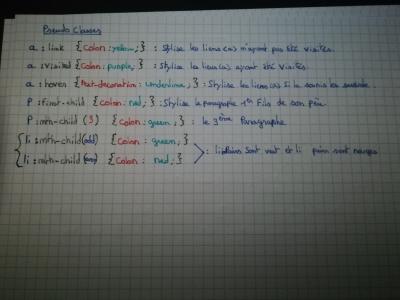 Pseudo Classes
a : link {Color : yellow ; } : Stylise les liens (a) n'ayant pas été visités.
a : visited {Color : purple ; } : Stylise les liens (a) ayant été visités.
a : hover {text-decoration : underline ; } : Stylise les liens (a) si la souris les survole.
P : first-child {color : red ; } : Stylise le paragraphe 1er Fils de son père
P : nth-child (3) {Color : green ; } : le 3ème Paragraphe
li : nth-child (odd) {Color : green ; }
li : nth-child (even) {Color : red ; } : li sont vert et li pairs sont rouges